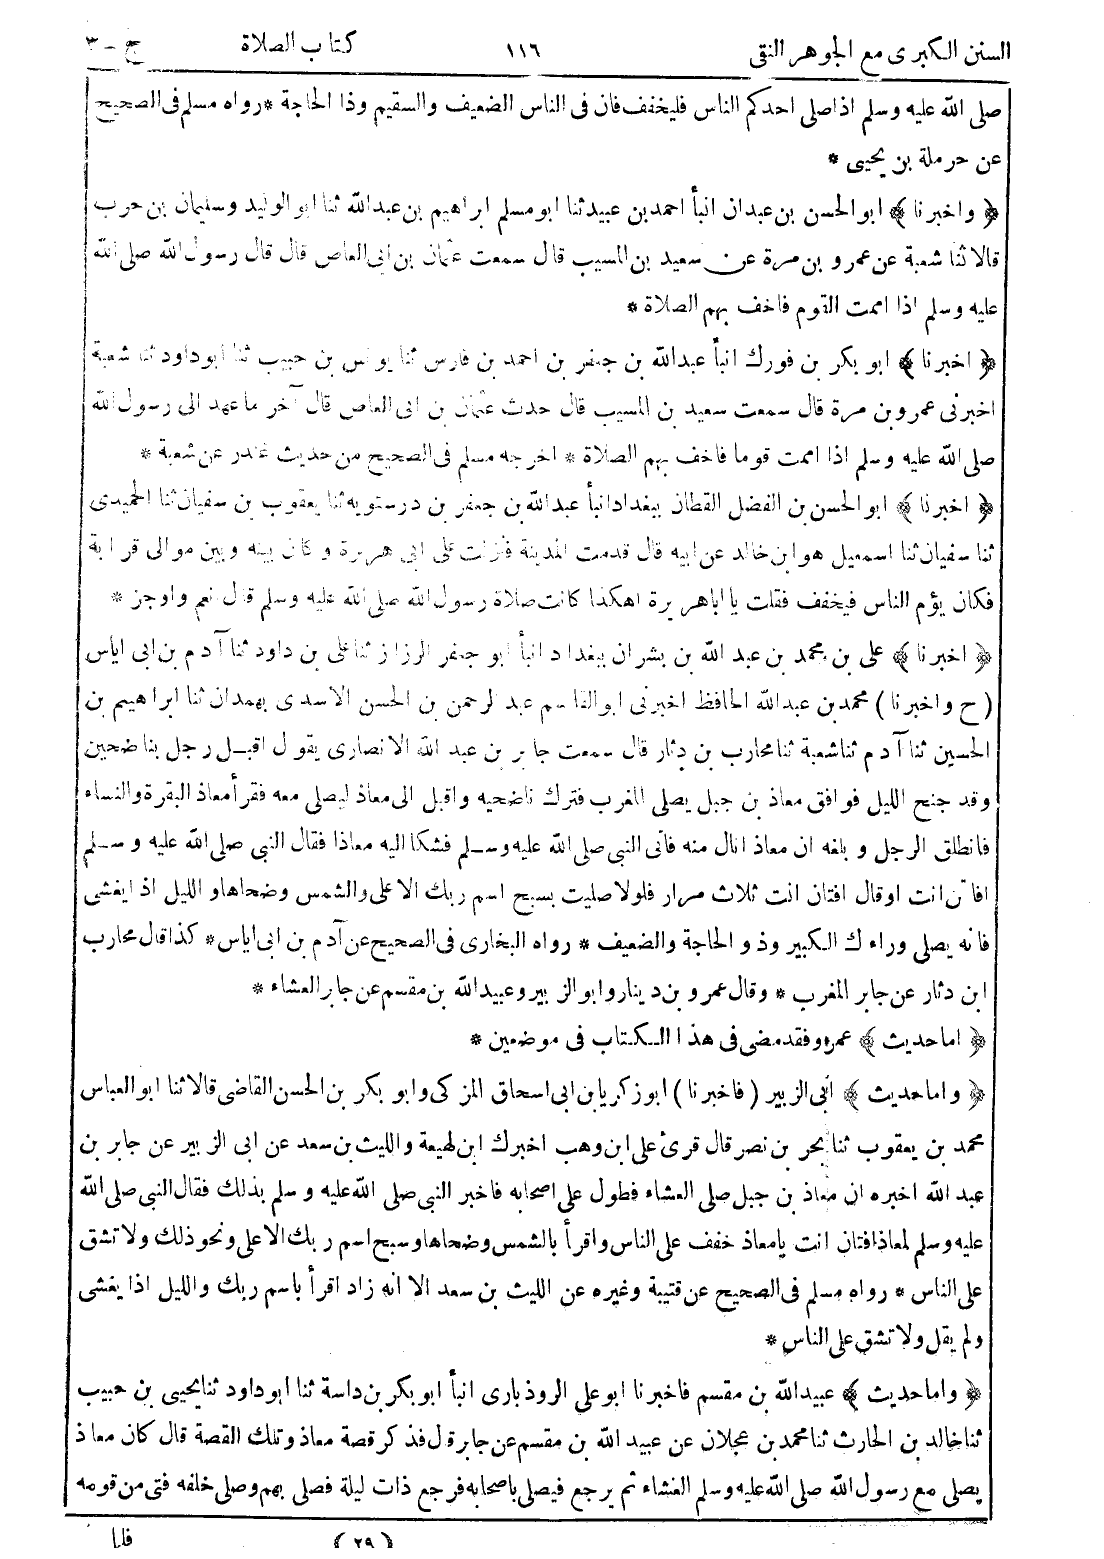 السنن الكبرى مع الجوهر النقى ١١٦ كتاب الصلاة ج - ٣
صلى الله عليه وسلم اذا صلى احدكم الناس فليخفف فان فى الناس الضعيف والسقيم وذا الحاجة * رواه مسلم فى الصحيح
عن حرملة بن يحيى *
﴿ واخبرنا ﴾ ابو الحسن بن عبدان انبأ احمد بن عبيد ثنا ابو مسلم ابراهيم بن عبد الله ثنا ابو الوليد وسليمان بن حرب
قالا ثنا شعبة عن عمرو بن مرة عن سعيد بن المسيب قال سمعت عثمان بن ابى العاص قال قال رسول الله صلى الله
عليه وسلم اذا اممت القوم فاخف بهم الصلاة *
﴿ اخبرنا ﴾ ابو بكر بن فورك انبأ عبد الله بن جعفر بن احمد بن فارس ثنا يونس بن حبيب ثنا ابو داود ثنا شعبة
اخبرنى عمرو بن مرة قال سمعت سعيد بن المسيب قال حدث عثمان بن ابى العاص قال آخر ما عهد الى رسول الله
صلى الله عليه وسلم اذا اممت قوما فاخف بهم الصلاة * اخرجه مسلم فى الصحيح من حديث غندر عن شعبة *
﴿ اخبرنا ﴾ ابو الحسن بن الفضل القطان ببغداد انبأ عبد الله بن جعفر بن درستويه ثنا يعقوب بن سفيان ثنا الحميدى
ثنا سفيان ثنا اسمعيل هو ابن خالد عن ابيه قال قدمت المدينة فنزلت على ابى هريرة وكان بينه وبين موالى قرابة
فكان يؤم الناس فيخفف فقلت يا ابا هريرة اهكذا كانت صلاة رسول الله صلى الله عليه وسلم قال نعم واوجز *
﴿ اخبرنا ﴾ على بن محمد بن عبد الله بن بشران ببغداد انبأ ابو جعفر الرزاز ثنا على بن داود ثنا آدم بن ابى اياس
( ح واخبرنا ) محمد بن عبد الله الحافظ اخبرنى ابو القاسم عبد الرحمن بن الحسن الاسدى بهمدان ثنا ابراهيم بن
الحسين ثنا آدم ثنا شعبة ثنا محارب بن دثار قال سمعت جابر بن عبد الله الانصارى يقول اقبل رجل بناضحين
وقد جنح الليل فوافق معاذ بن جبل يصلى المغرب فترك ناضحيه واقبل الى معاذ ليصلى معه فقرأ معاذ البقرة والنساء
فانطلق الرجل وبلغه ان معاذا نال منه فاتى النبى صلى الله عليه وسلم فشكا اليه معاذا فقال النبى صلى الله عليه وسلم
افاتن انت او قال افتان انت ثلاث مرار فلولا صليت بسبح اسم ربك الاعلى والشمس وضحاها والليل اذا يغشى
فانه يصلى وراءك الكبير وذو الحاجة والضعيف * رواه البخارى فى الصحيح عن آدم بن ابى اياس * كذا قال محارب
ابن دثار عن جابر المغرب * وقال عمرو بن دينار وابو الزبير وعبيد الله بن مقسم عن جابر العشاء *
﴿ اما حديث ﴾ عمرو فقد مضى فى هذا الكتاب فى موضعين *
﴿ واما حديث ﴾ ابى الزبير ( فاخبرنا ) ابو زكريا بن ابى اسحاق المزكى وابو بكر بن الحسن القاضى قالا ثنا ابو العباس
محمد بن يعقوب ثنا بحر بن نصر قال قرئ على ابن وهب اخبرك ابن لهيعة والليث بن سعد عن ابى الزبير عن جابر بن
عبد الله اخبره ان معاذ بن جبل صلى العشاء فطول على اصحابه فاخبر النبى صلى الله عليه وسلم بذلك فقال النبى صلى الله
عليه وسلم لمعاذ افتان انت يا معاذ خفف على الناس واقرأ بالشمس وضحاها وسبح اسم ربك الاعلى ونحو ذلك ولا تشق
على الناس * رواه مسلم فى الصحيح عن قتيبة وغيره عن الليث بن سعد الا انه زاد اقرأ باسم ربك والليل اذا يغشى
ولم يقل ولا تشق على الناس *
﴿ واما حديث ﴾ عبيد الله بن مقسم فاخبرنا ابو على الروذبارى انبأ ابو بكر بن داسة ثنا ابو داود ثنا يحيى بن حبيب
ثنا خالد بن الحارث ثنا محمد بن عجلان عن عبيد الله بن مقسم عن جابر قال فذكر قصة معاذ وتلك القصة قال كان معاذ
يصلى مع رسول الله صلى الله عليه وسلم العشاء ثم يرجع فيصلى باصحابه فرجع ذات ليلة فصلى بهم وصلى خلفه فتى من قومه
( ٢٩ ) فلما